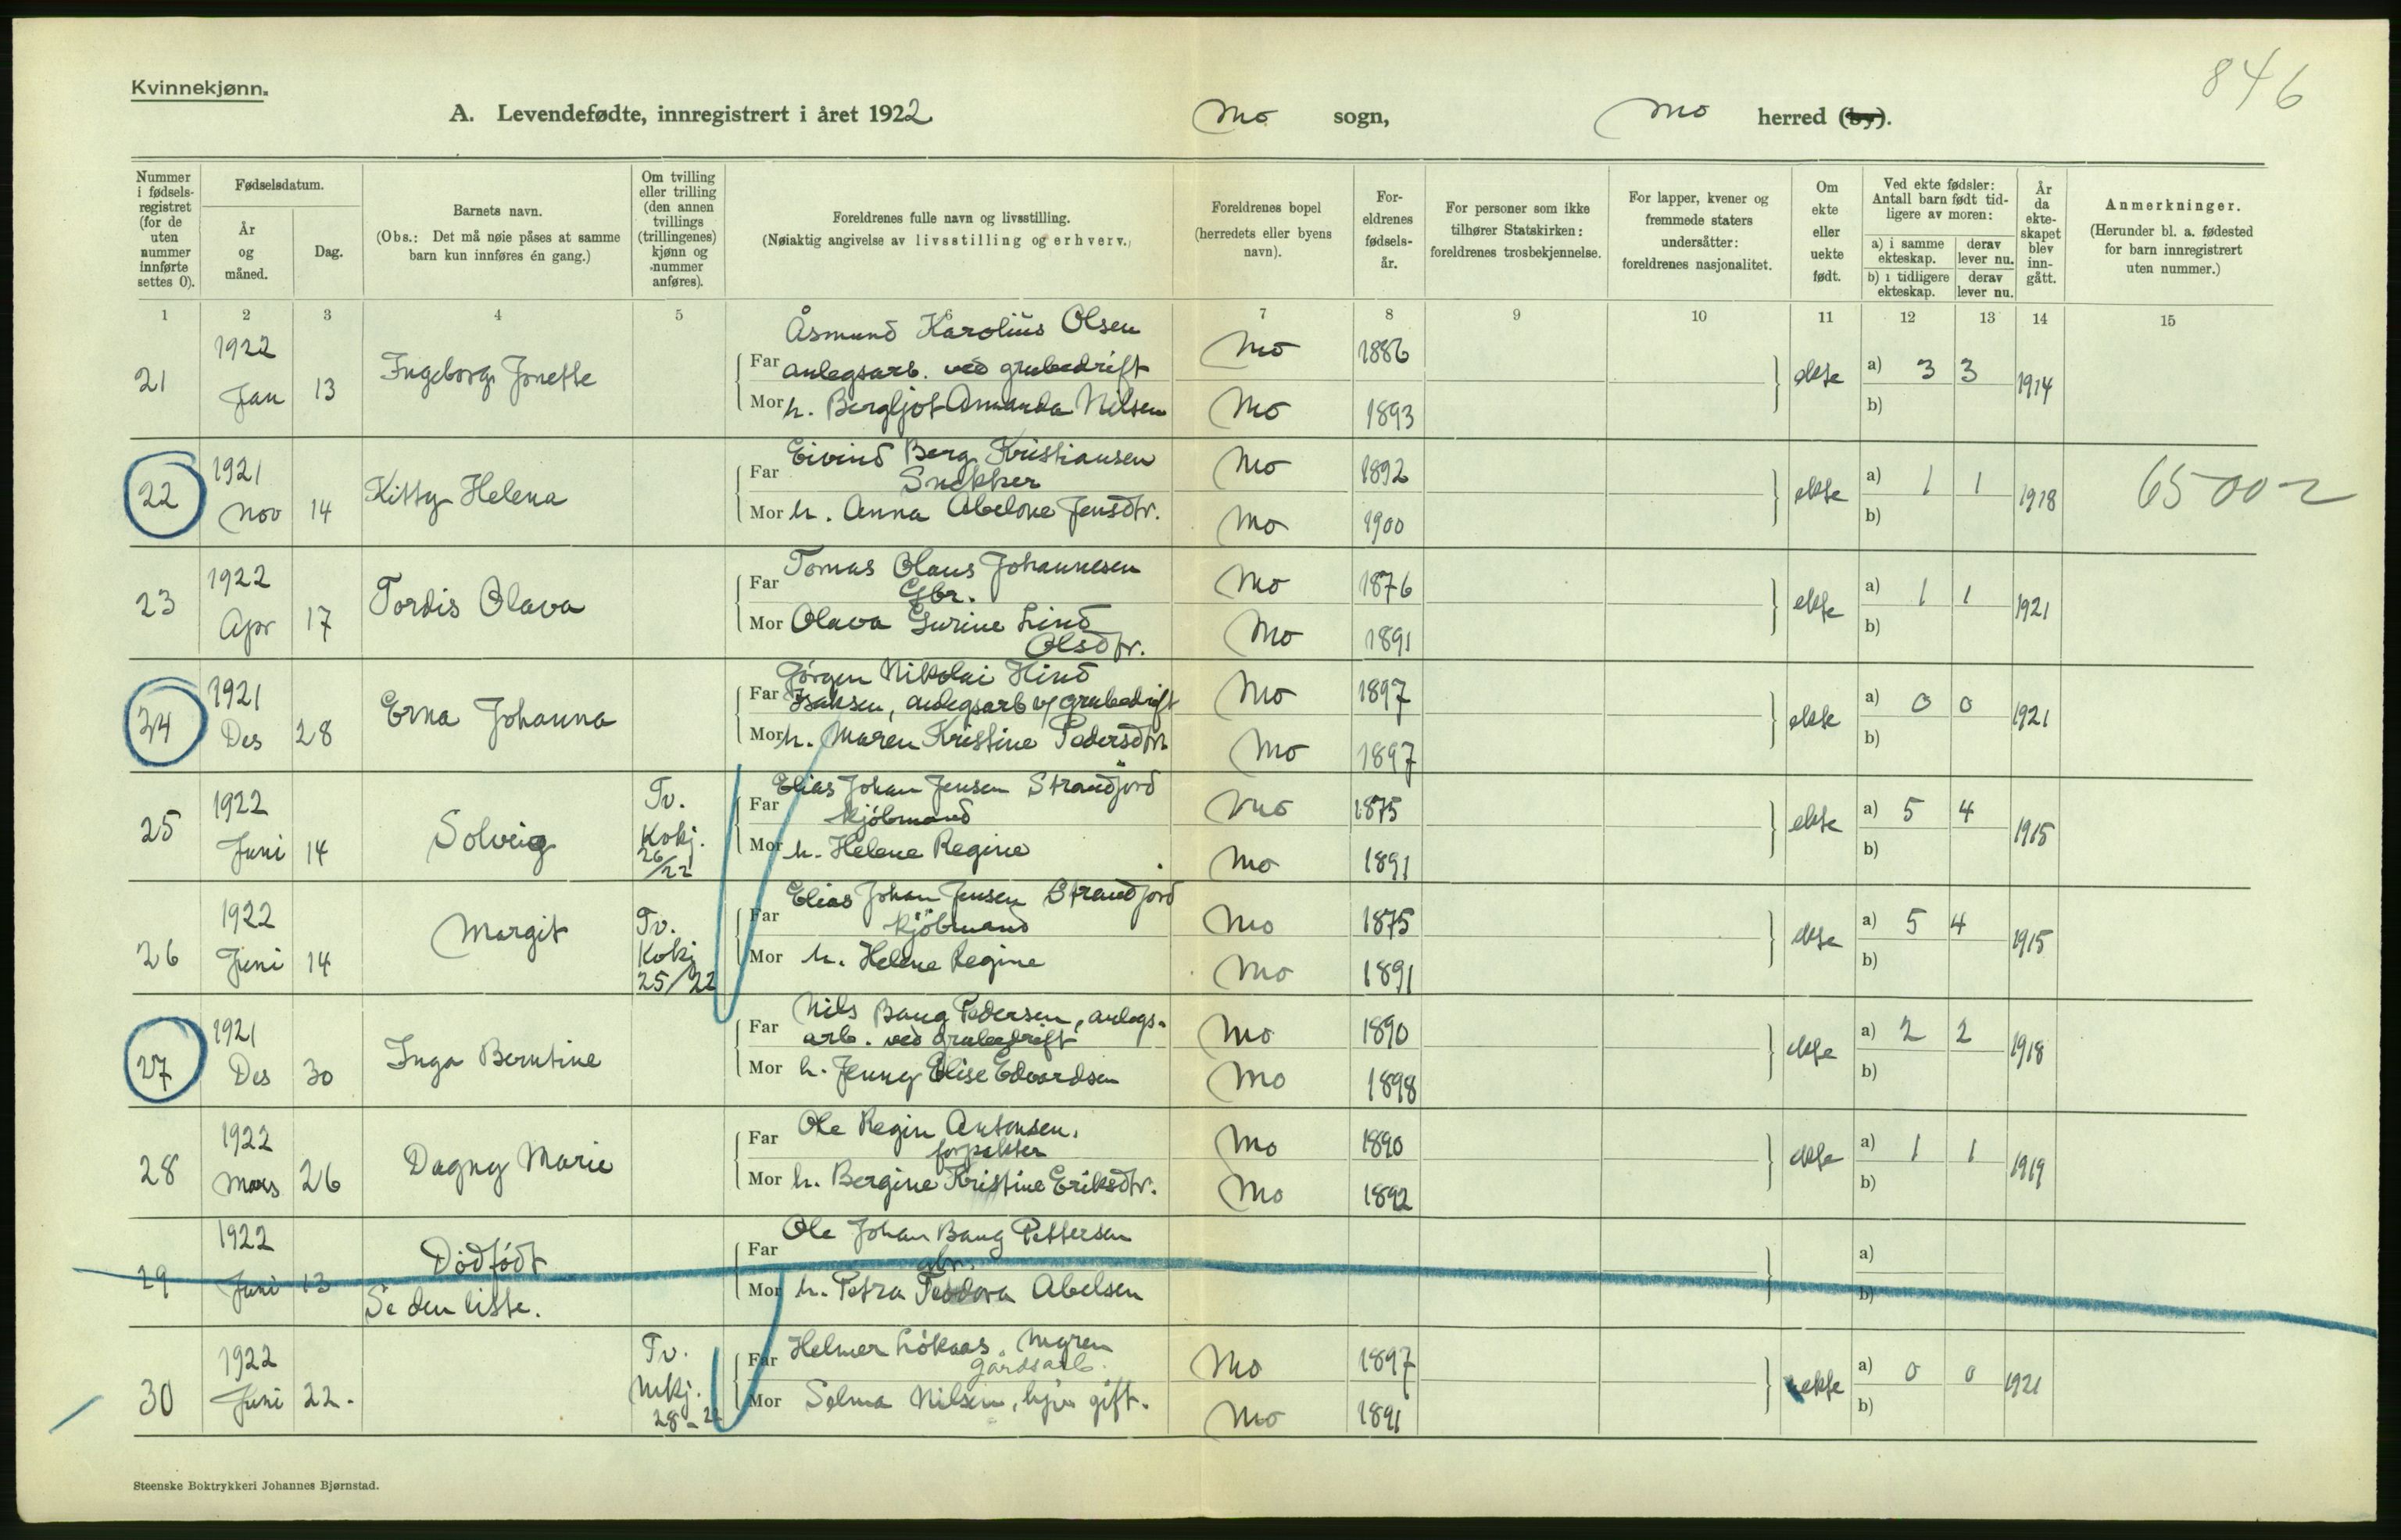 846
Kvinnekjønn.
A. Levendefødte, innregistrert i året 1922 Mo sogn, Mo herred (by).
Nummer i fødsels-registret (for de uten nummer innførte settes 0).
Fødselsdatum.
År og måned.
Dag.
Barnets navn.
(Obs.: Det må nøie påses at samme barn kun innføres én gang.)
Om tvilling eller trilling (den annen tvillings (trillingenes) kjønn og nummer anføres).
Foreldrenes fulle navn og livsstilling.
(Nøiaktig angivelse av livsstilling og erhverv.)
Foreldrenes bopel (herredets eller byens navn).
For-eldrenes fødsels-år.
For personer som ikke tilhører Statskirken: foreldrenes trosbekjennelse.
For lapper, kvener og fremmede staters undersåtter: foreldrenes nasjonalitet.
Om ekte eller uekte født.
Ved ekte fødsler: Antall barn født tid-ligere av moren:
a) i samme ekteskap. derav lever nu.
b) i tidligere ekteskap. derav lever nu.
År da ekte-skapet blev inn-gått.
Anmerkninger.
(Herunder bl. a. fødested for barn innregistrert uten nummer.)
1 2 3 4 5 6 7 8 9 10 11 12 13 14 15
21 1922 Jan 13 Ingeborg Jonette
Åsmund Karolius Olsen
Far anlegsarb. ved grubedrift Mo 1886
Mor h. Bergljot Amanda Nilsen Mo 1893
ekte a) 3 3 b) 1914
22 1921 Nov 14 Kitty Helena
Eivind Berg Kristiansen
Far Snekker Mo 1892
Mor h. Anna Abelone Jensdtr. Mo 1900
ekte a) 1 1 b) 1918 65002
23 1922 Apr 17 Tordis Olava
Tomas Olaus Johannesen
Far Gbr. Mo 1876
Mor Olava Gurine Lind
Olsdtr. Mo 1891
ekte a) 1 1 b) 1921
24 1921 Des 28 Erna Johanna
Jørgen Nikolai Hind
Far Isaksen, anlegsarb v/ grubedrift Mo 1897
Mor h. Maren Kristine Pedersdtr. Mo 1897
ekte a) 0 0 b) 1921
25 1922 Juni 14 Solveig Tv. Kvkj. 26/22
Elias Johan Jensen Strandjord
Far kjöbmand Mo 1875
Mor h. Helene Regine Mo 1891
ekte a) 5 4 b) 1915
26 1922 Juni 14 Margit Tv. Kvkj 25/22
Elias Johan Jensen Strandjord
Far kjöbmand Mo 1875
Mor h. Helene Regine Mo 1891
ekte a) 5 4 b) 1915
27 1921 Des 30 Inga Berntine
Nils Baug Pedersen, anlegs-
Far arb. ved grubedrift Mo 1890
Mor h. Jenny Elise Edvardsen Mo 1898
ekte a) 2 2 b) 1918
28 1922 Mars 26 Dagny Marie
Ole Regin Antonsen.
Far forpakter Mo 1890
Mor h. Bergine Kristine Eriksdtr. Mo 1892
ekte a) 1 1 b) 1919
29 1922 Juni 13 Dødfødt
Se den liste.
Ole Johan Baug Pettersen
Far gbr.
Mor h. Petra Abelsen
a) b)
30 1922 Juni 22. Tv. Mkj. 28-22
Far Helmer Løkaas, Myren
gårdsarb. Mo 1897
Mor Selma Nilsen, gift. Mo 1891
ekte a) 0 0 b) 1921
Steenske Boktrykkeri Johannes Bjørnstad.